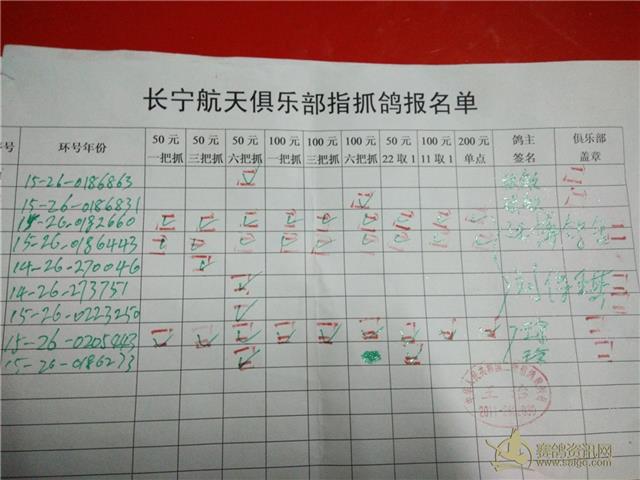 长宁航天俱乐部指抓鸽报名单
序号 环号年份 50元一把抓 50元三把抓 50元六把抓 100元一把抓 100元三把抓 100元六把抓 50元22取1 100元11取1 200元单点 鸽主签名 俱乐部盖章
15-26-0186863
15-26-0186831
15-26-0182660
15-26-0186443
14-26-270046
14-26-273751
15-26-0223250
15-26-0205443
15-26-0186273
赛鸽资讯网
www.saige.com